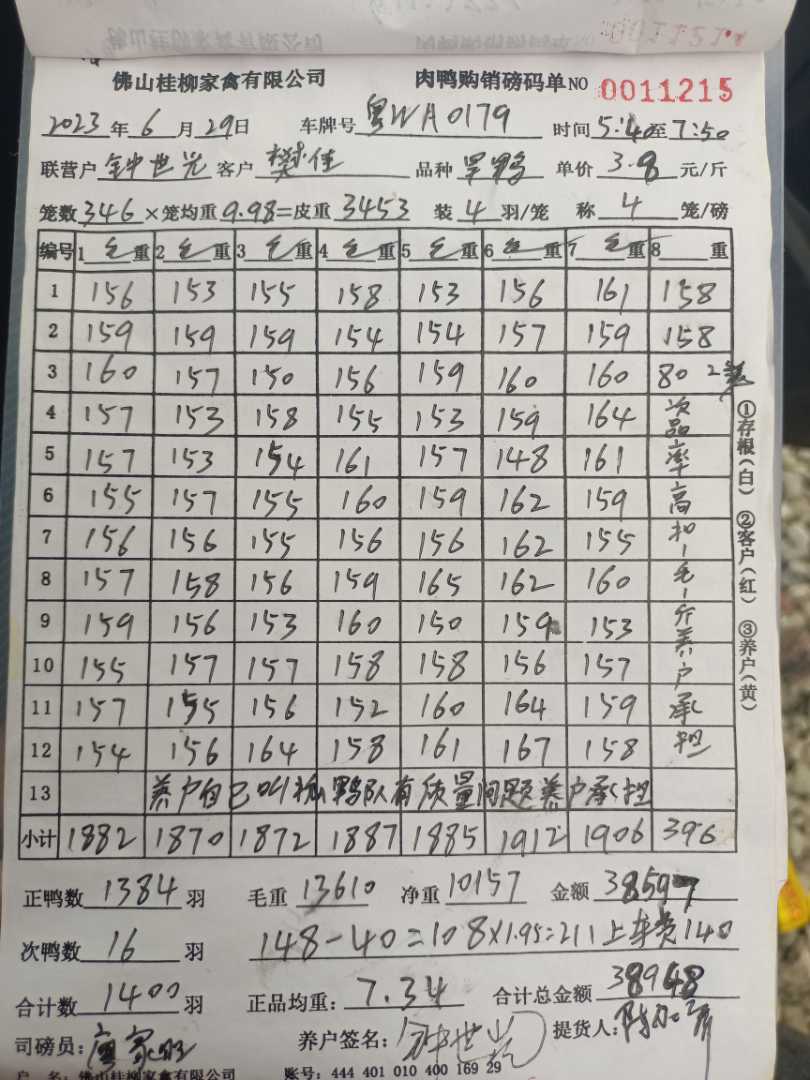 佛山桂柳家禽有限公司 肉鸭购销磅码单NO 0011215
2023年6月29日 车牌号粤WA0179 时间5:40至7:50
联营户钟世光 客户樊佳 品种旱鸭 单价3.8元/斤
笼数346×笼均重9.98=皮重3453 装4羽/笼 称4笼/磅
编号 1毛重 2毛重 3毛重 4毛重 5毛重 6毛重 7毛重 8重
1 156 153 155 158 153 156 161 158
2 159 159 159 154 154 157 159 158
3 160 157 150 156 159 160 160 80 2笼
4 157 153 158 155 153 159 164
5 157 153 154 161 157 148 161
6 155 157 155 160 159 162 159
7 156 156 155 156 156 162 155
8 157 158 156 159 165 162 160
9 159 156 153 160 150 159 153
10 155 157 157 158 158 156 157
11 157 155 156 152 160 164 159
12 154 156 164 158 161 167 158
次品率高扣一毛一斤养户承担
13 养户自己叫抓鸭队有质量问题养户承担
小计 1882 1870 1872 1887 1885 1912 1906 396
①存根(白) ②客户(红) ③养户(黄)
正鸭数1384羽 毛重13610 净重10157 金额38597
次鸭数16羽 148-40=108×1.95=211上车费140
合计数1400羽 正品均重:7.34 合计总金额38948
司磅员: 养户签名: 提货人:
户 名:佛山桂柳家禽有限公司 账号:444 401 010 400 169 29